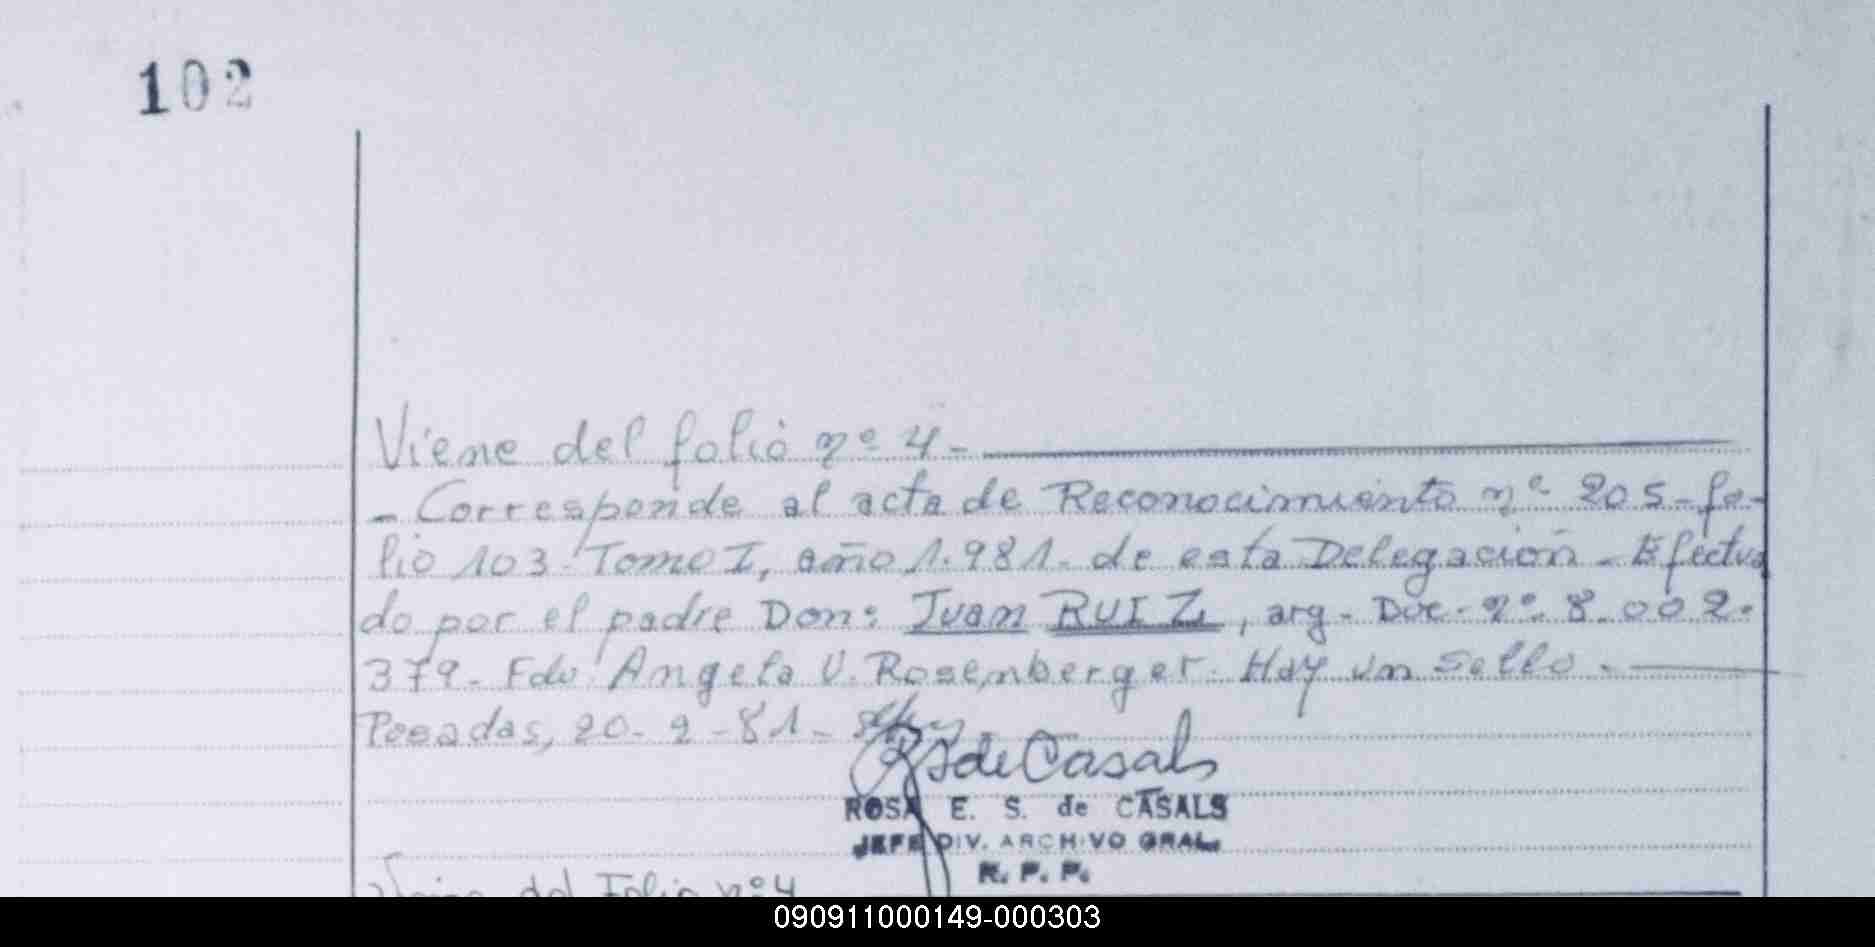 102
Viene del folio nº 4-
- Corresponde al acta de Reconocimiento nº 205- fo-
lio 103- Tomo I, año 1.981- de esta Delegación - Efectua
do por el padre Don: Juan RUIZ, arg- Doc- nº 8.002.
379- Fdo: Angela V. Rosemberger. Hay un sello -
Posadas, 20- 2 -81-
RSdeCasals
ROSA E. S. de CASALS
JEFE DIV. ARCHIVO GRAL.
R. P. P.
del Folio nº4
090911000149-000303